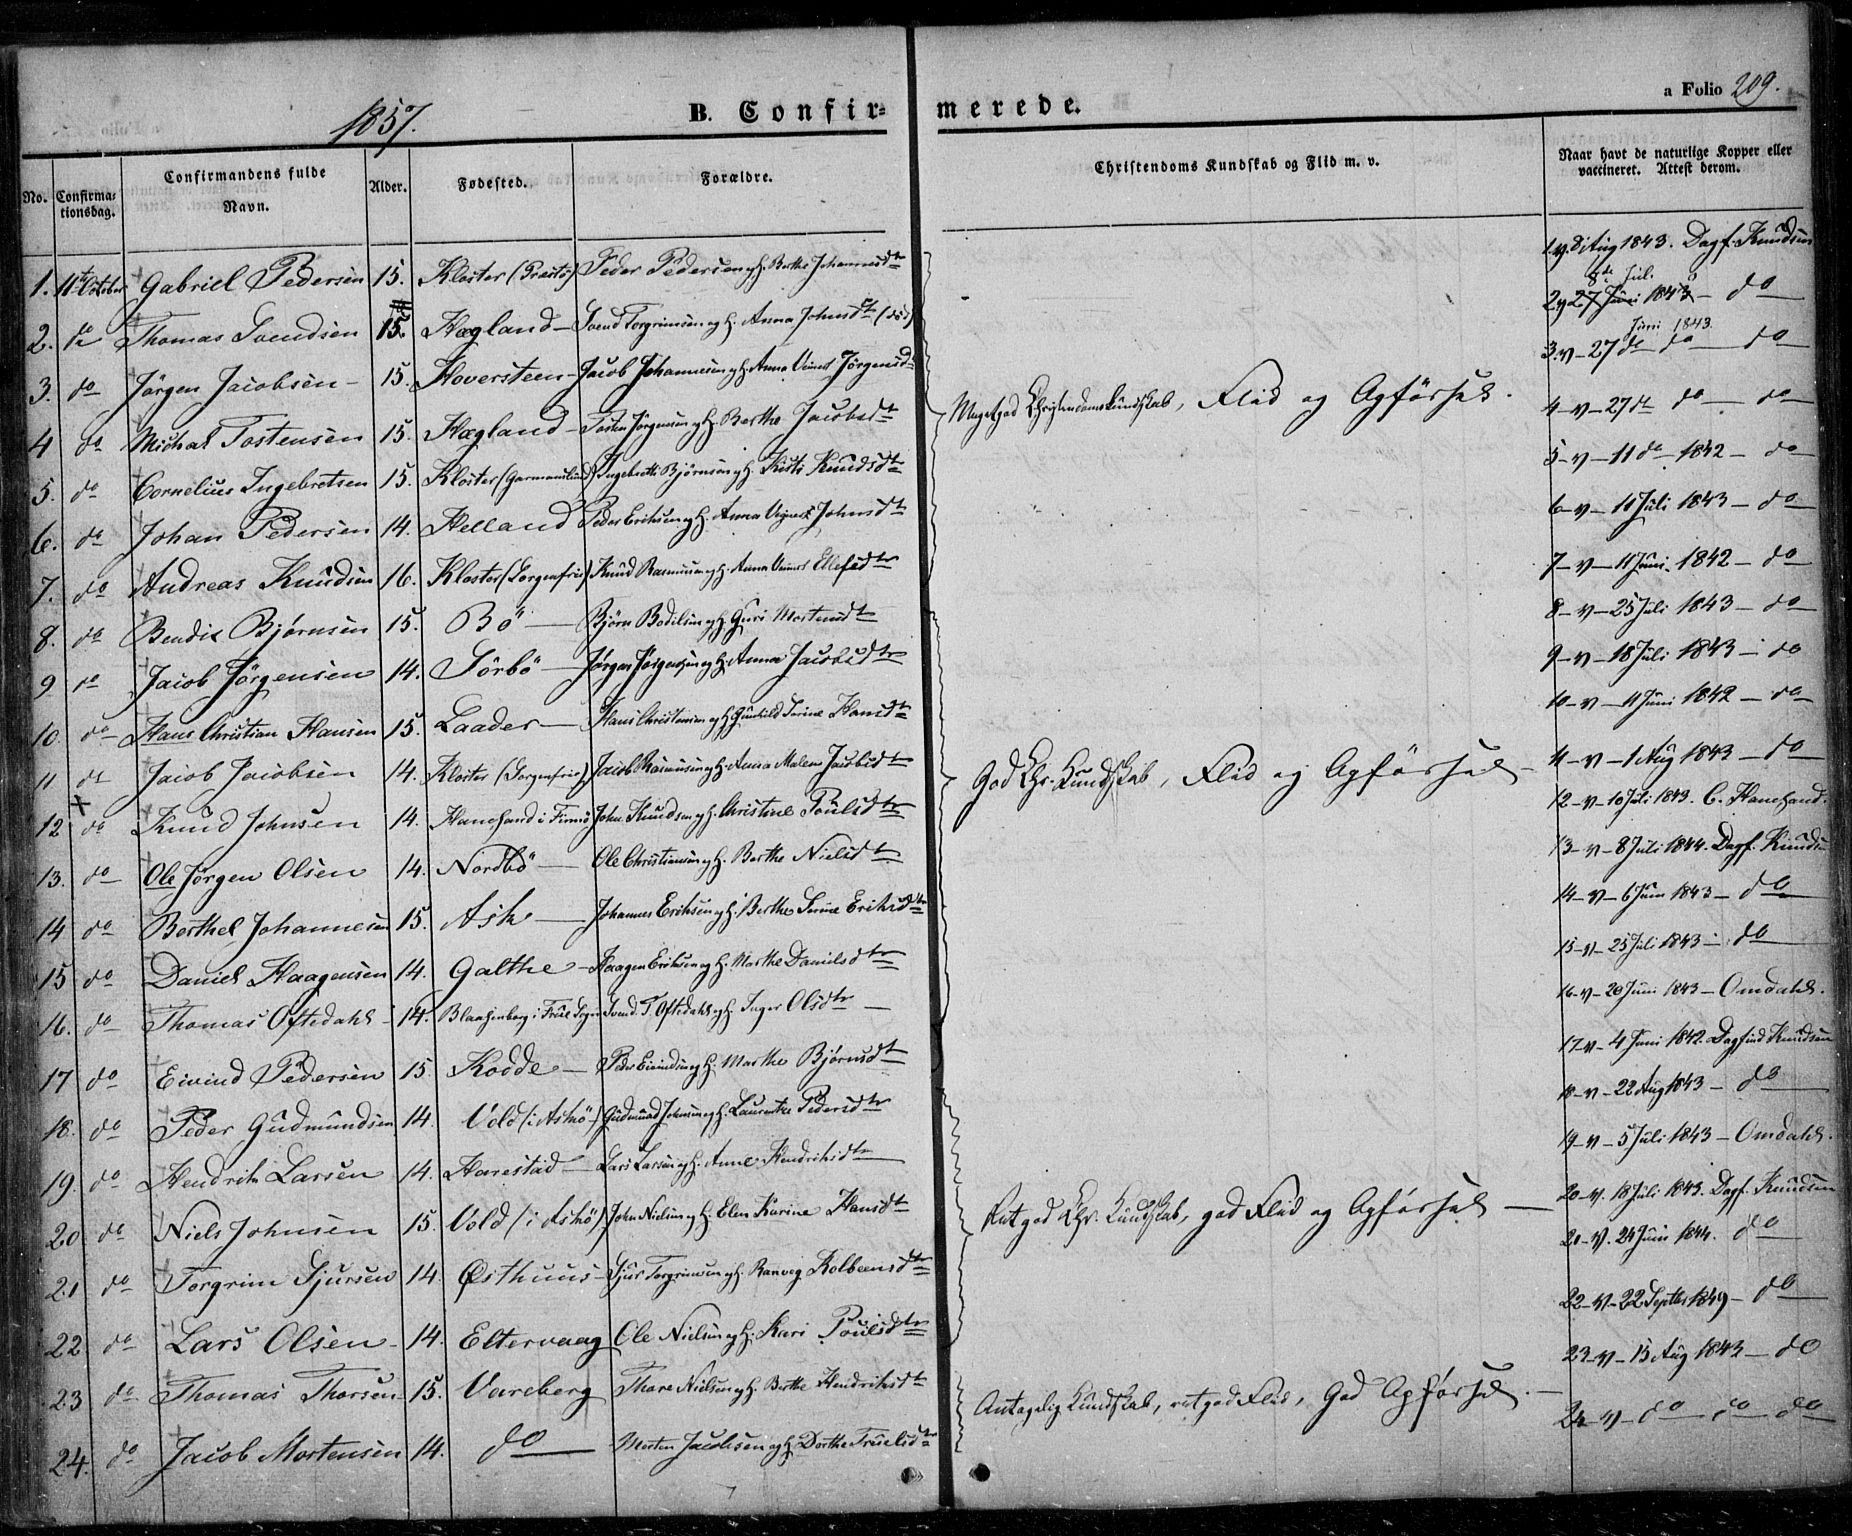 a Folio 209.
1857.
B. Confir= merede.
No.
Confirmationsdag.
Confirmandens fulde Navn.
Alder.
Fødested.
Forældre.
Christendoms Kundskab og Flid m. v.
Naar havt de naturlige Kopper eller vaccineret. Attest derom.
1. 11te October Gabriel Pedersen 15. Kloster (Prestø) Peder Pedersen og H. Berthe Johannesdtr 1 v. 8 Aug 1843. Dagf. Knudsen
2. do Thomas Svendsen 15. Hægland – Svend Torgrimsen og H. Anna Johnsdtr (død) 2 v 8de Juli 1843 – do
3. do Jørgen Jacobsen – 15. Hoversteen – Jacob Johannesen og H. Anna Jørgensdtr 3. v – 27 do Juni 1843. do do
4 do Michal Tostensen 15. Hægland – Tosten Jørgensen og H. Berthe Jacobsdtr 4 – v – 27 do do – do
5. do Cornelius Ingebretsen 15. Kloster Ingebrett Bjørnsen og H. Kisti Knudsdtr 5 – v – 11 do 1842 – do
6. do Johan Pedersen 14. Helland Peder Eriksen og H. Anna Johnsdtr 6 – v – 11 Juli 1843 – do
7. do Andreas Knudsen 16. Kloster (Sorgenfrie) Knud Rasmussen og H. Anna Ellefsdtr 7 – v – 11 Juni 1842 – do
8. do Bendix Bjørnsen 15. Bö – Bjørn Bodilsen og H. Guri Mortensdtr 8 – v – 25 Juli 1843 – do
9 do Jacob Jørgensen 14. Sörbö – Jørgen Jørgensen og H. Anna Jacobsdtr 9 – v – 18 Juli 1843 – do
10. do Hans Christian Hansen 15. Laader – Hans Christensen og H. Gunhild Serine Hansdtr 10 – v – 11 Juni 1842 – do
11 do Jacob Jacobsen 14. Kloster (Sorgenfrie) Jacob Rasmusen og H. Anna Malene Jacobsdtr 11 – v – 1 Aug 1843 – do
12 do Knud Johnsen 14. John Knudsen og H. Christine Poulsdtr 12 – v – 10 Juli 1843. C.
13. do Ole Jørgen Olsen 14. Nordbö – Ole Christiansen og H. Berthe Nielsdtr 13 – v – 8 Juli 1844. Dagf. Knudsen
14 do Berthel Johannesen 15. Ask – Johannes Eriksen og H. Berthe Serine Eriksdtr 14 – v – 6 Juni 1843 – do
15 do Daniel Haagensen 14. Galthe – Haagen Eriksen og H. Marthe Danielsdtr 15 – v – 25 Juli 1843 – do
16. do Thomas Oftedahl – 14. Svend T Oftedahl og H. Inger Olsdtr – 16 – v – 20 Juni 1843 – Omdahl.
17 do Eivind Pedersen 15. Kodde – Peder Eivindsen og H. Marthe Bjørnsdtr 17 – v – 4 Juni 1842. Dagfind Knudsen
18. do Peder Gudmundsen 14. Vold (i Askö) Gudmund Johnsen og H. Laurentze Pedersdtr 18 – v – 22 Aug 1843 – do
19. do Hendrik Larsen 14. Harestad – Lars Larsen og H. Anne Hendriksdtr 19 – v – 5 Juli 1843 – Omdahl.
20 do Niels Johnsen 15. Vold (i Askö) John Nielsen og H. Elen Karine Hansdtr 20 – v. 18 Juli 1843. Dagf. Knudsen
21 do Torgrim Sjursen 14. Østhuus – Sjur Torgrimsen og H. Ranveg Kolbeensdtr 21 – v. 24 Juni 1844. do
22 do Lars Olsen – 14. Eltervaag Ole Nielsen og H. Kari Poulsdtr 22 – v – 22 Septbr 1849 – do
23 do Thomas Thorsen 15. Vareberg Thore Nielsen og H. Berthe Hendriksdtr 23 – v – 15 Aug 1843 – do
24. do Jacob Mortensen 14. do – Morten Jacobsen og H. Dorthe Truelsdtr 24 – v – do do do
Megetgod Christendomskundskab, Flid og Opførsel.
God Chr. Kundskab, Flid og Opførsel –
Ret god Chr. Kundskab, god Flid og Opførsel –
Antagelig Kundskab, ret god Flid, God Opførsel. –